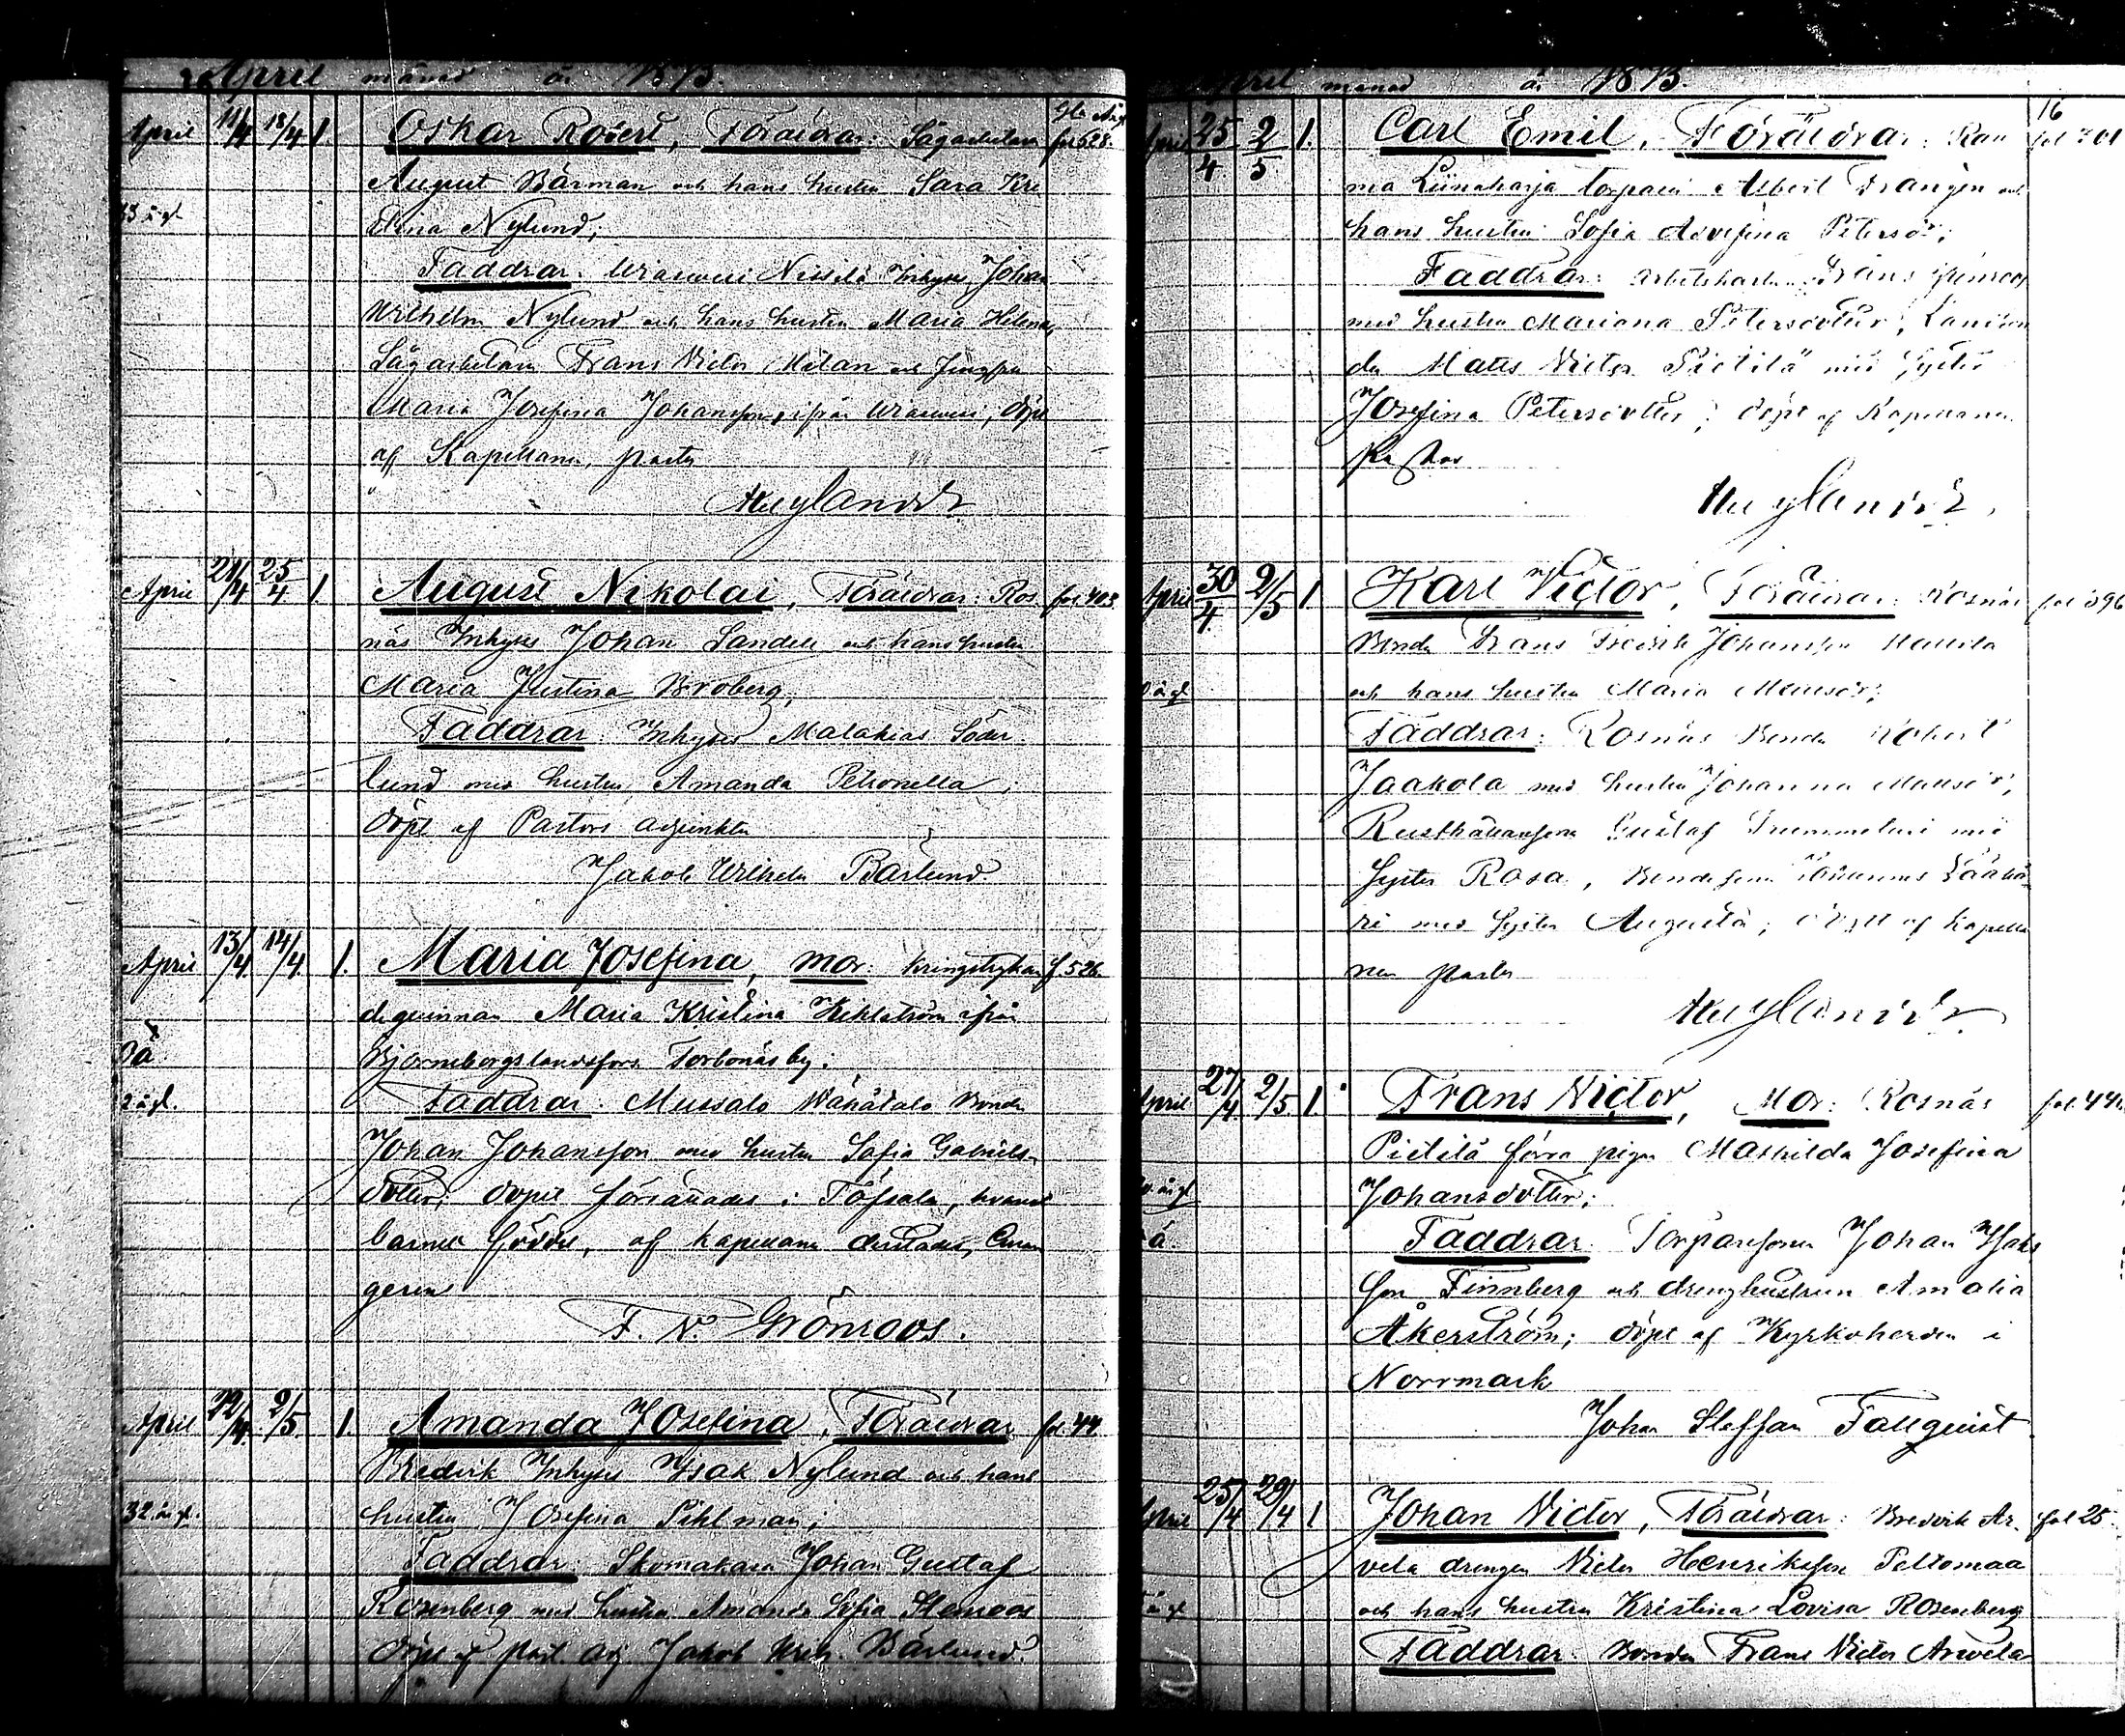 April månad år 1873.
April 11/4 18/4 1. Oskar Robert, Föräldrar: Sågarbetaren fol 528.
August Bärman och hans hustru Sara Kri
33 å gl. stina Nylund;
Faddrar: Inhyses Johan
Wilhelm Nylund och hans hustru Maria Helena,
Sågarbetaren Frans Victor Melan och Jungfru
Maria Josefina Johansson, ifrån döpt
af Kapellanen, pastor
Mey­lander
April 21/4 25/4 1. August Nikolai, Föräldrar: Ros fol. 403
näs Inhyses Johan Sandell och hans hustru
Maria Justina Broberg;
Faddrar: Inhyses Malakias Söder
lund med hustru Amanda Petronella;
döpt af Pastors adjunkten
Jakob Wilhelm Bärlund.
April 13/4 14/4 1. Maria Josefina, mor: kringstrykan f 526
de qvinnan Maria Kristina Kihlström ifrån
oä. Björneborgs landsförs. Torbonäs by;
2 å gl. Faddrar: Mussalo Wähätalo Bonden
Johan Johansson med hustru Sofia Gabriels
dotter; döpt i Töfsala, hvarest
barnet föddes, af kapellanen derstädes,
geren
F. W. Grönroos.
April 22/4 2/5 1. Amanda Josefina, Föräldrar fol. 44
Bredvik Inhyses Isak Nylund och hans
32 å gl. hustru Josefina Pihlman;
Faddrar: Skomakaren Johan Gustaf
Rosenberg med hustru Amanda Sofia Stenroos
döpt af past. adj Jakob Wilh. Bärlund.
April månad år 1873.
16
April 25/4 2/5 1. Carl Emil, Föräldrar: Rau fol 701
ma Liinaharja torparen Albert Frangén och
hans hustru Sofia Adolfina Petersdr;
Faddrar: arbetskarlen Frans
med hustru Mariana Petersdotter,
Matts Victor Pietilä med Syster
Josefina Petersdotter; döpt af Kapellanen
Pastor
Meylander
April 30/4 2/5 1. Karl Victor, Föräldrar: Rosnäs fol 396
Bonden Frans Fredrik Johansson
och hans hustru Maria
Faddrar: Rosnäs Bonden Robert
Jaakola med hustru Johanna
Rusthållaresonen Gustaf Trummetari med
Syster Rosa, Bondesonen Johannes
ri med Syster Augusta; döpt af kapella
nen pastor
Meylander
April 27/4 2/5 1. Frans Victor, Mor: Rosnäs fol. 44
Pietilä förra pigan Mathilda Josefina
Johansdotter;
oä. Faddrar: Torparesonen Johan Isaks
son Finnberg och drenghustrun Amalia
Åkerström; döpt af Kyrkoherden i
Norrmark
Johan Staffan Fallqvist
April 25/4 29/4 1 Johan Victor, Föräldrar: Bredvik Ar fol 25
vela drengen Victor Henriksson Peltomaa
och hans hustru Kristina Lovisa Rosenberg
Faddrar: Bonden Frans Victor Arwela